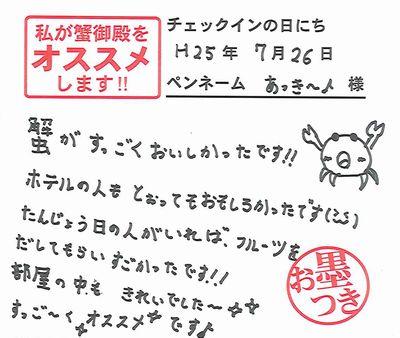 私が蟹御殿を
オススメ
します!!
チェックインの日にち
H25年 7月26日
ペンネーム あっき〜♪ 様
蟹がすっごくおいしかったです!!
ホテルの人もとおってもおもしろかったです(^^)
たんじょう日の人がいれば、フルーツを
だしてもらいすごかったです!!
部屋の中もきれいでした〜☆☆
すっご〜くオススメです♪
お墨つき